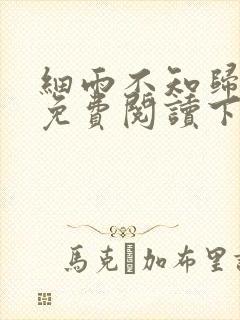 細雨不知歸
免費閱讀下
馬克 加布里